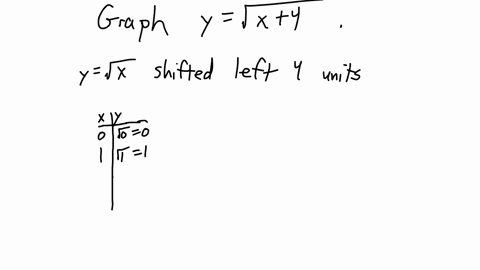 Graph y = √x+4 .
y = √x shifted left 4 units
x | y
0 | √0 = 0
1 | √1 = 1